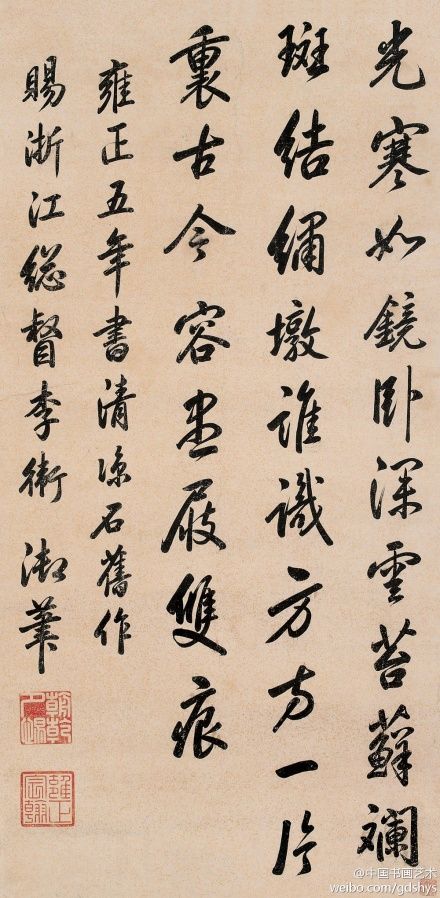 光寒如鏡卧深雲苔蘚斕
斑結繡墩誰識方方一片
裏古今容盡屐雙痕
雍正五年書清涼石舊作
賜浙江總督李衛 御筆
朝乾夕惕
雍正宸翰
@中国书画艺术
weibo.com/gdshys